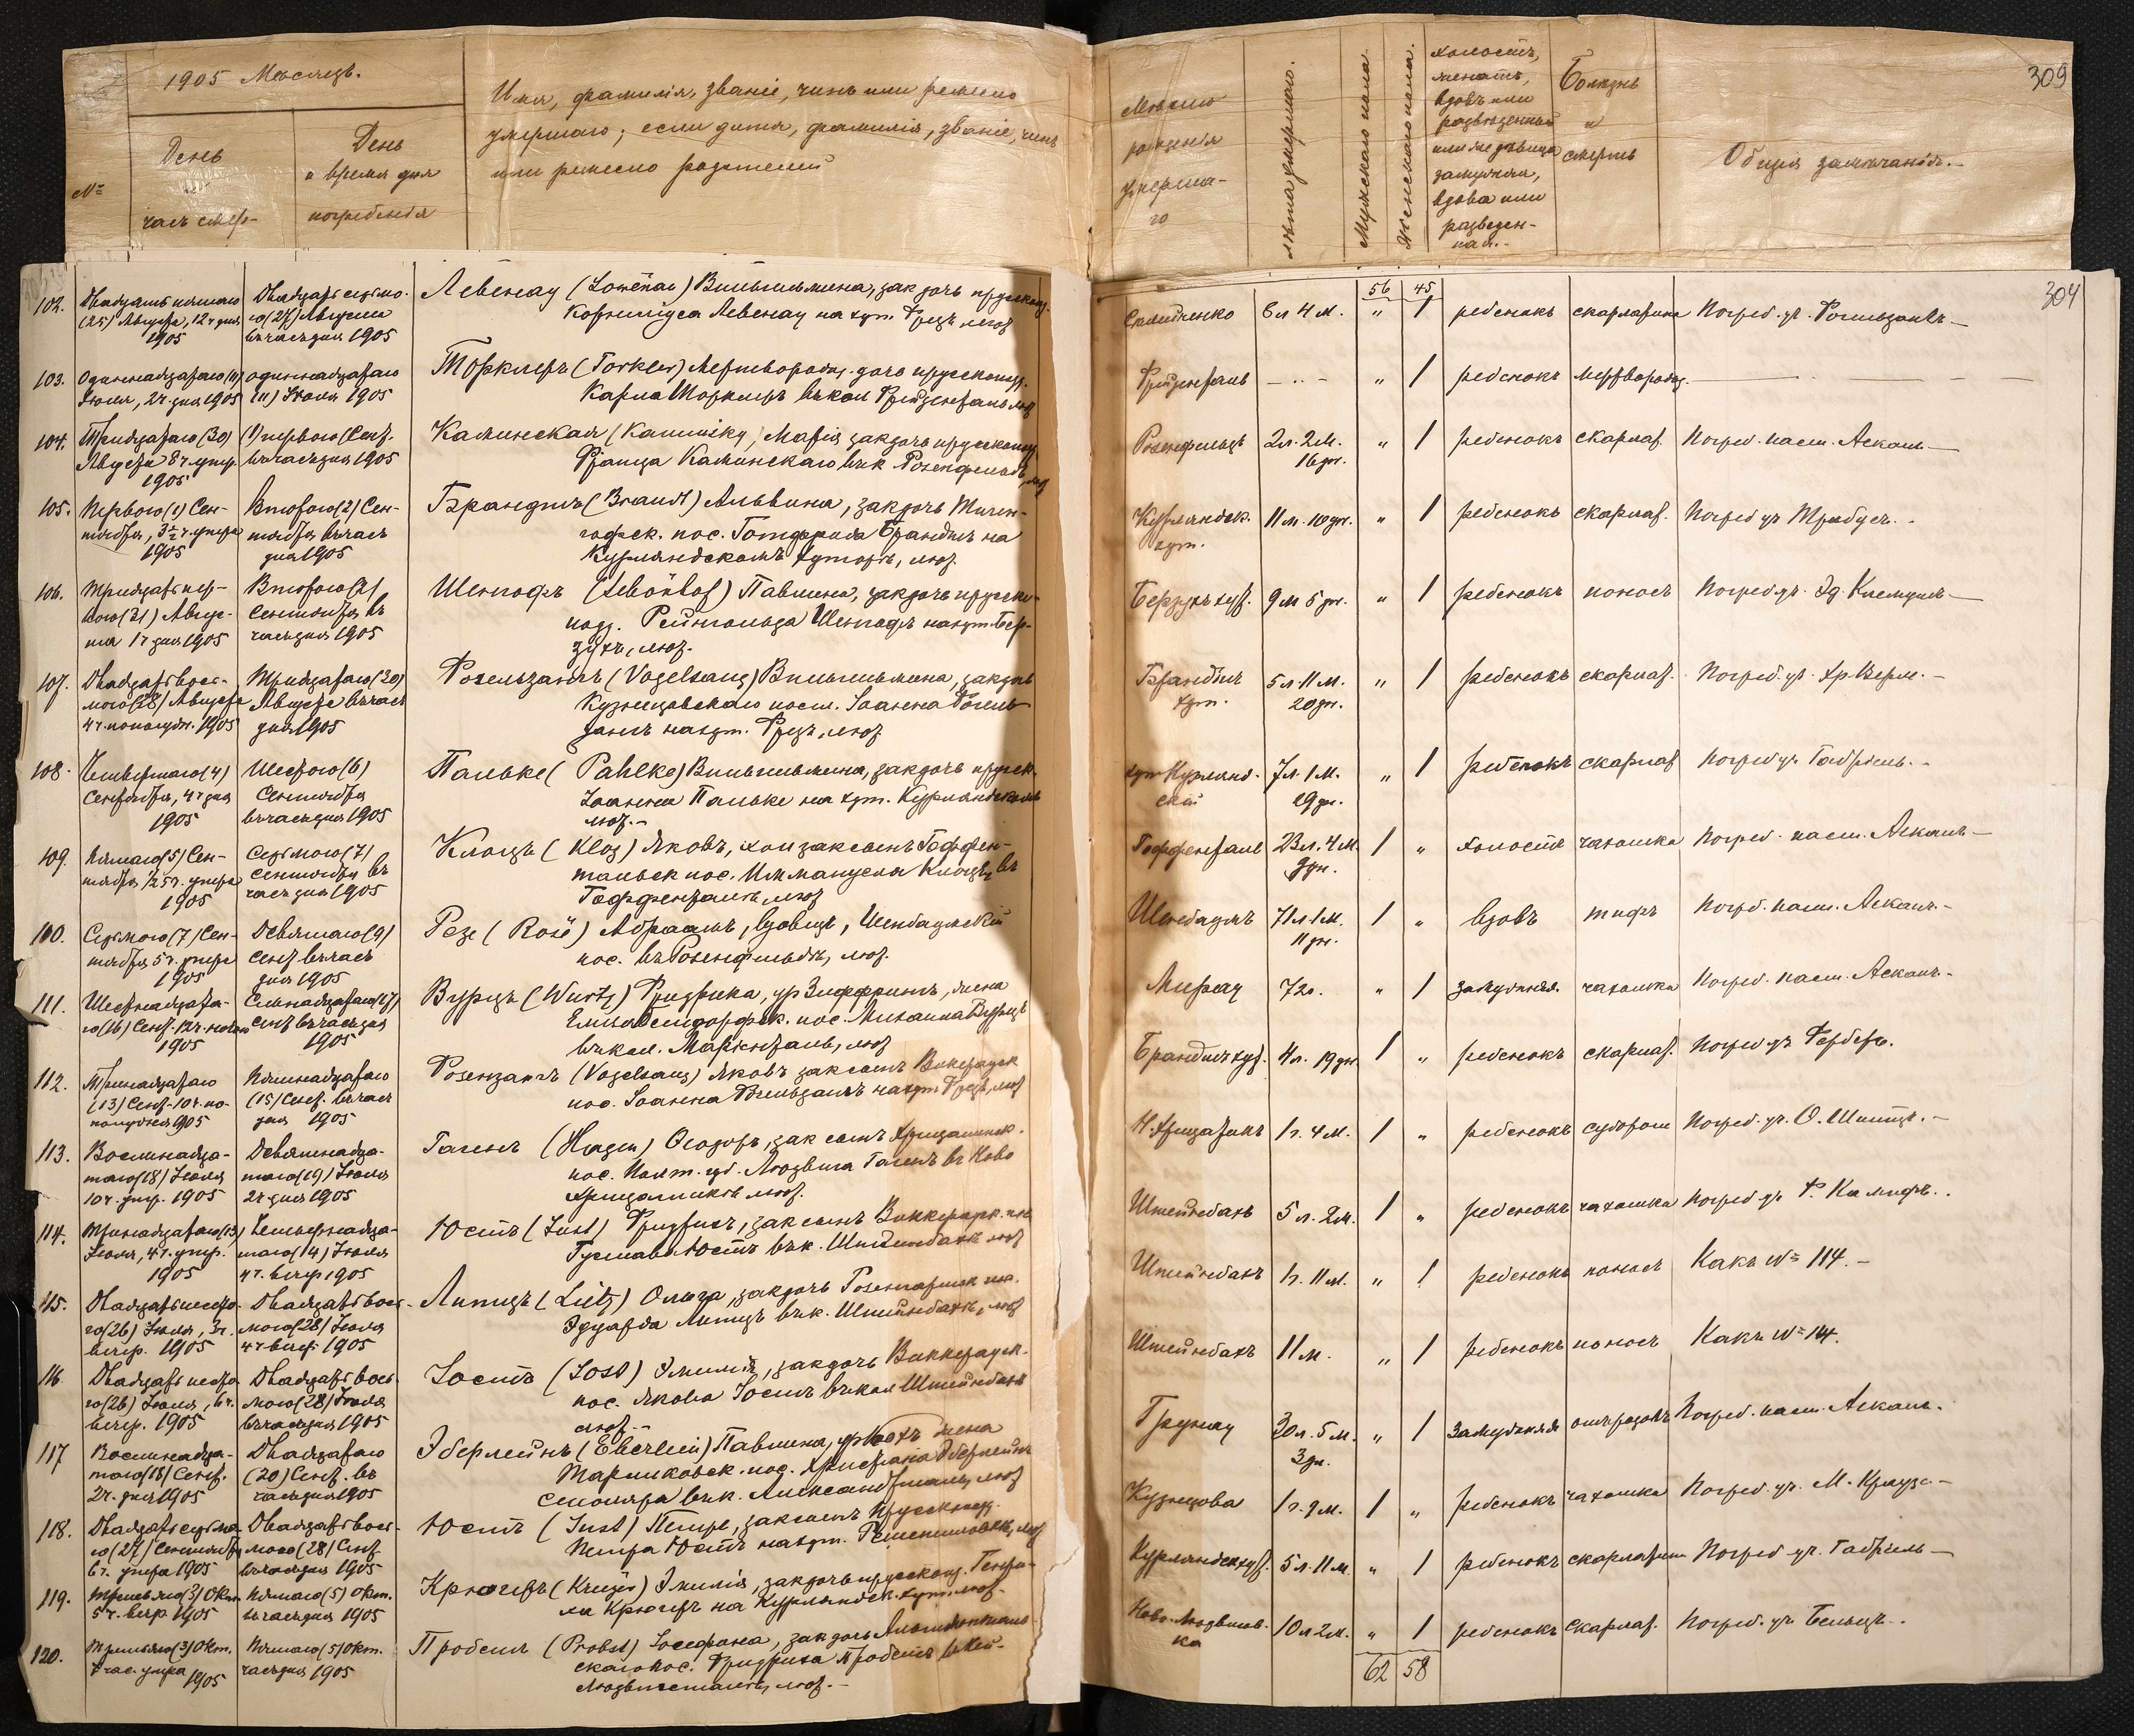 1905 Месяцъ.
№
День
и
часъ смер-
День
и время дня
погребенія
Имя, фамилія, званіе, чинъ или ремесло
умершаго; если дитя, фамилія, званіе, чинъ
или ремесло родителей
102. Двадцать пятаго
(25) Августа, 12 ч дня
1905
Двадцать седьмо-
го (27) Августа
въ часъ дня 1905
Левенау (Lowenau) Вильгельмина, зак дочь прусскопд.
Корнилуса Левенау на хут. Фрезъ лют
103. Одиннадцатаго (11)
Іюля, 2 ч. дня 1905
Одиннадцатаго
(11) Іюля 1905
Торклеръ (Torkler) Мертворожд. дочь прусскопод.
Карла Торклеръ въ кол Фриденталь лют
104. Тридцатаго (30)
Августа 8 ч. утр.
1905
(1) перваго Сент.
въ часъ дня 1905
Каминская (Kaminsky) Марія зак дочь прусскопод
Франца Каминскаго въ к Розенфельдъ, лют
105. Перваго (1) Сен-
тября, 3½ ч. утра
1905
Второго (2) Сен-
тября въ часъ
дня 1905
Брандтъ (Brandt) Альвина, зак дочь
пос. Готфрида Брандтъ на
Курляндскомъ хуторъ, лют.
106. Тридцать пер-
ваго (31) Авгус-
та 1 ч дня 1905
Второго (2)
Сентября въ
часъ дня 1905
Шенгофъ Павлина, зак дочь прусско-
подд. Рейнгольда Шенгофъ на хут. Бер-
лют.
107. Двадцать вось-
мого (28) Августа
4 ч. пополудн. 1905
Тридцатаго (30)
Августа въ часъ
дня 1905
Фогельзангъ (Vogelsang) Вильгельмина, зак дочь
Кузнецовскаго посел. Іоанна Фогель-
зангъ на хут. Фрезъ, лют
108. Четвертаго (4)
Сентября, 4 ч дня
1905
Шестого (6)
Сентября
въ часъ дня 1905
Пальке (Pahlke) Вильгельмина, зак дочь прусск.
Іоанна Пальке на хут. Курляндскомъ
лют. -
109. Пятаго (5) Сен-
тября ½ 5 ч. утра
1905
Седьмого (7)
Сентября въ
часъ дня 1905
Клоцъ (Kloz) Яковъ, хол зак сынъ Гоффен-
тальск пос. Иммануела Клоцъ, въ
Гоффенталъ, лют
110. Седьмого (7) Сен-
тября 5 ч. утра
1905
Девятаго (9)
Сент. въ часъ
дня 1905
Резе (Rosé) Абраамъ, вдовецъ, Шенбаумскій
пос. въ Розенфельдъ, лют.
111. Шестнадцата-
го (16) Сент. 12 ч. ночи
1905
Семнадцатаго (17)
Сент въ часъ дня
1905
Вурцъ (Wurtz) Фридрика, ур Зиффритъ, жена
пос. Михаила Вурцъ
въ кол. Маріенталь, лют
112. Тринадцатаго
(13) Сент. 10 ч. по-
полудня 1905
Пятнадцатаго
(15) Сент. въ часъ
дня 1905
Фогелзангъ (Vogelsang) Яковъ зак сынъ
пос. Іоанна Фогельзангъ на хут. Фрезъ, лют
113. Восемнадца-
таго (18) Іюля
10 ч. утр. 1905
Девятнадца-
таго (19) Іюля
2 ч. дня 1905
Гагенъ (Hagen) Ѳеодоръ, зак сынъ
пос. губ. Людвига Гагенъ въ Ново
лют.
114. Тринадцатаго (13)
Іюля, 4 ч. утр.
1905
Четырнадца-
таго (14) Іюля
4 ч. вечер 1905
Юстъ (Just) Фридрихъ, зак сынъ
Густава Юстъ въ к. Штейнбахъ лют
115. Двадцать шесто-
го (26) Іюля, 3 ч.
вечер. 1905
Двадцать вось-
мого (28) Іюля
4 ч вечер 1905
Литцъ (Lietz) Ольга, зак дочь
Эдуарда Литцъ въ к. Штейнбахъ, лют
116 Двадцать шесто
го (26) Іюля, 6 ч.
вечер. 1905
Двадцать вось
мого (28) Іюля
въ часъ дня 1905
Іостъ (Jost) Эмилія, зак дочь
пос. Якова Іостъ въ кол Штейнбахъ
лют. -
117 Восемнадца-
таго (18) Сент.
2 ч. дня 1905
Двадцатаго
(20) Сент. въ
часъ дня 1905
Эберлейнъ (Eberlein) Павлина, жена
пос. Христіана Эберлейнъ
столяра въ к. лют
118. Двадцать седьмо
го (27) Сентября
6 ч. утра 1905
Двадцать вось-
мого (28) Сент
въ часъ дня 1905
Юстъ (Just) Петръ, зак сынъ прусскопод.
Петра Юстъ на хут. лют
119. Третьяго (3) Окт.
5 ч. вечр 1905
Пятаго (5) Окт.
въ часъ дня 1905
Крюгеръ (Krüger) Эмилія, зак дочь прусскопд. Генри-
ха Крюгеръ на Курляндск. хут. лют.
120. Третьяго (3) Окт.
час. утра
1905
Пятаго (5) Окт.
часъ дня 1905
Пробстъ (Probst) Іозефина, зак дочь
скаго пос. Фридриха Пробстъ
лют. -
Место
рожденія
умерша-
го
Лета умершаго.
Мужскаго пола
Женскаго пола.
Холостъ,
женатъ,
вдовъ или
разведенный
или же девица
замужняя,
вдова или
разведен-
ная. -
Болезнь
и
смерть
Общія замечанія. -
309
304
56 45
8 л 4 м. „ 1 ребенокъ скарлатина Погреб. уч. Фогельзангъ -
Фриденталь - . . - „ 1 ребенокъ мертворожд.
Розенфельдъ 2 л. 2 м.
16 дн. „ 1 ребенокъ скарлат. Погреб. паст. Асканъ -
Курляндск.
хут. 11 м. 10 дн. „ 1 ребенокъ скарлат. Погреб уч
хут. 9 м 5 дн. „ 1 ребенокъ поносъ Погреб уч. Эд.
Брандтъ
хут. 5 л. 11 м.
20 дн. „ 1 ребенокъ скарлат. Погреб. уч.
хут Курлянд-
скій 7 л. 1 м.
29 дн. „ 1 ребенокъ скарлат Погреб уч Габріель. -
Гоффенталь 23 л. 4 м.
9 дн. 1 „ холостъ чахотка Погреб. паст. Асканъ -
Шенбаумъ 71 л 1 м.
11 дн. 1 „ вдовъ тифъ Погреб. паст. Асканъ. -
Мирау 72 г. „ 1 замужняя. чахотка Погреб. паст. Асканъ. -
Брандтъ хут. 4 л. 19 дн 1 „ ребенокъ скарлат. Погреб уч Ферберъ.
1 г. 4 м. 1 „ ребенокъ судороги Погреб. уч. О. -
Штейнбахъ 5 л. 2 м. 1 „ ребенокъ чахотка Погреб уч Ф.
Штейнбахъ 1 г. 11 м. „ 1 ребенокъ поносъ Какъ № 114. -
Штейнбахъ 11 м. „ 1 ребенокъ поносъ Какъ № 114.
Грунау 30 л. 5 м.
3 дн. „ 1 замужняя отъ родовъ Погреб. паст. Асканъ.
Кузнецова 1 г. 9 м. 1 „ ребенокъ чахотка Погреб. уч. М. Краузе -
Курляндск хут. 5 л. 11 м „ 1 ребенокъ скарлатин Погреб уч. Габріель -
Ново-Людвигов-
ка 10 л 2 м. „ 1 ребенокъ скарлат. Погреб. уч
62 58